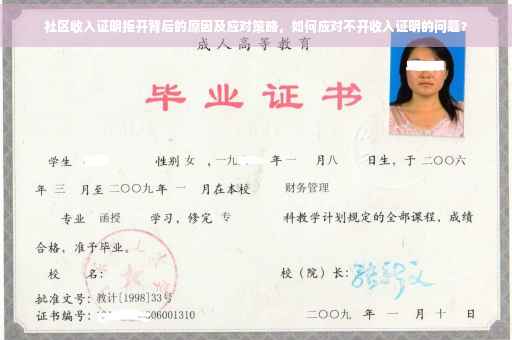 社区收入证明拒开背后的原因及应对策略，如何应对不开收入证明的问题？
成人高等教育
毕业证书
学生 性别 女 ，一九 年 一 月八 日生，于 二〇〇六
年 三 月至 二〇〇九 年 一 月在本校 财务管理
专业 函授 学习，修完 专 科教学计划规定的全部课程，成绩
合格，准予毕业。
校 名： 校（院）长：
批准文号：教计[1998]33号
证书编号： 06001310 二〇〇九 年 一 月 十 日